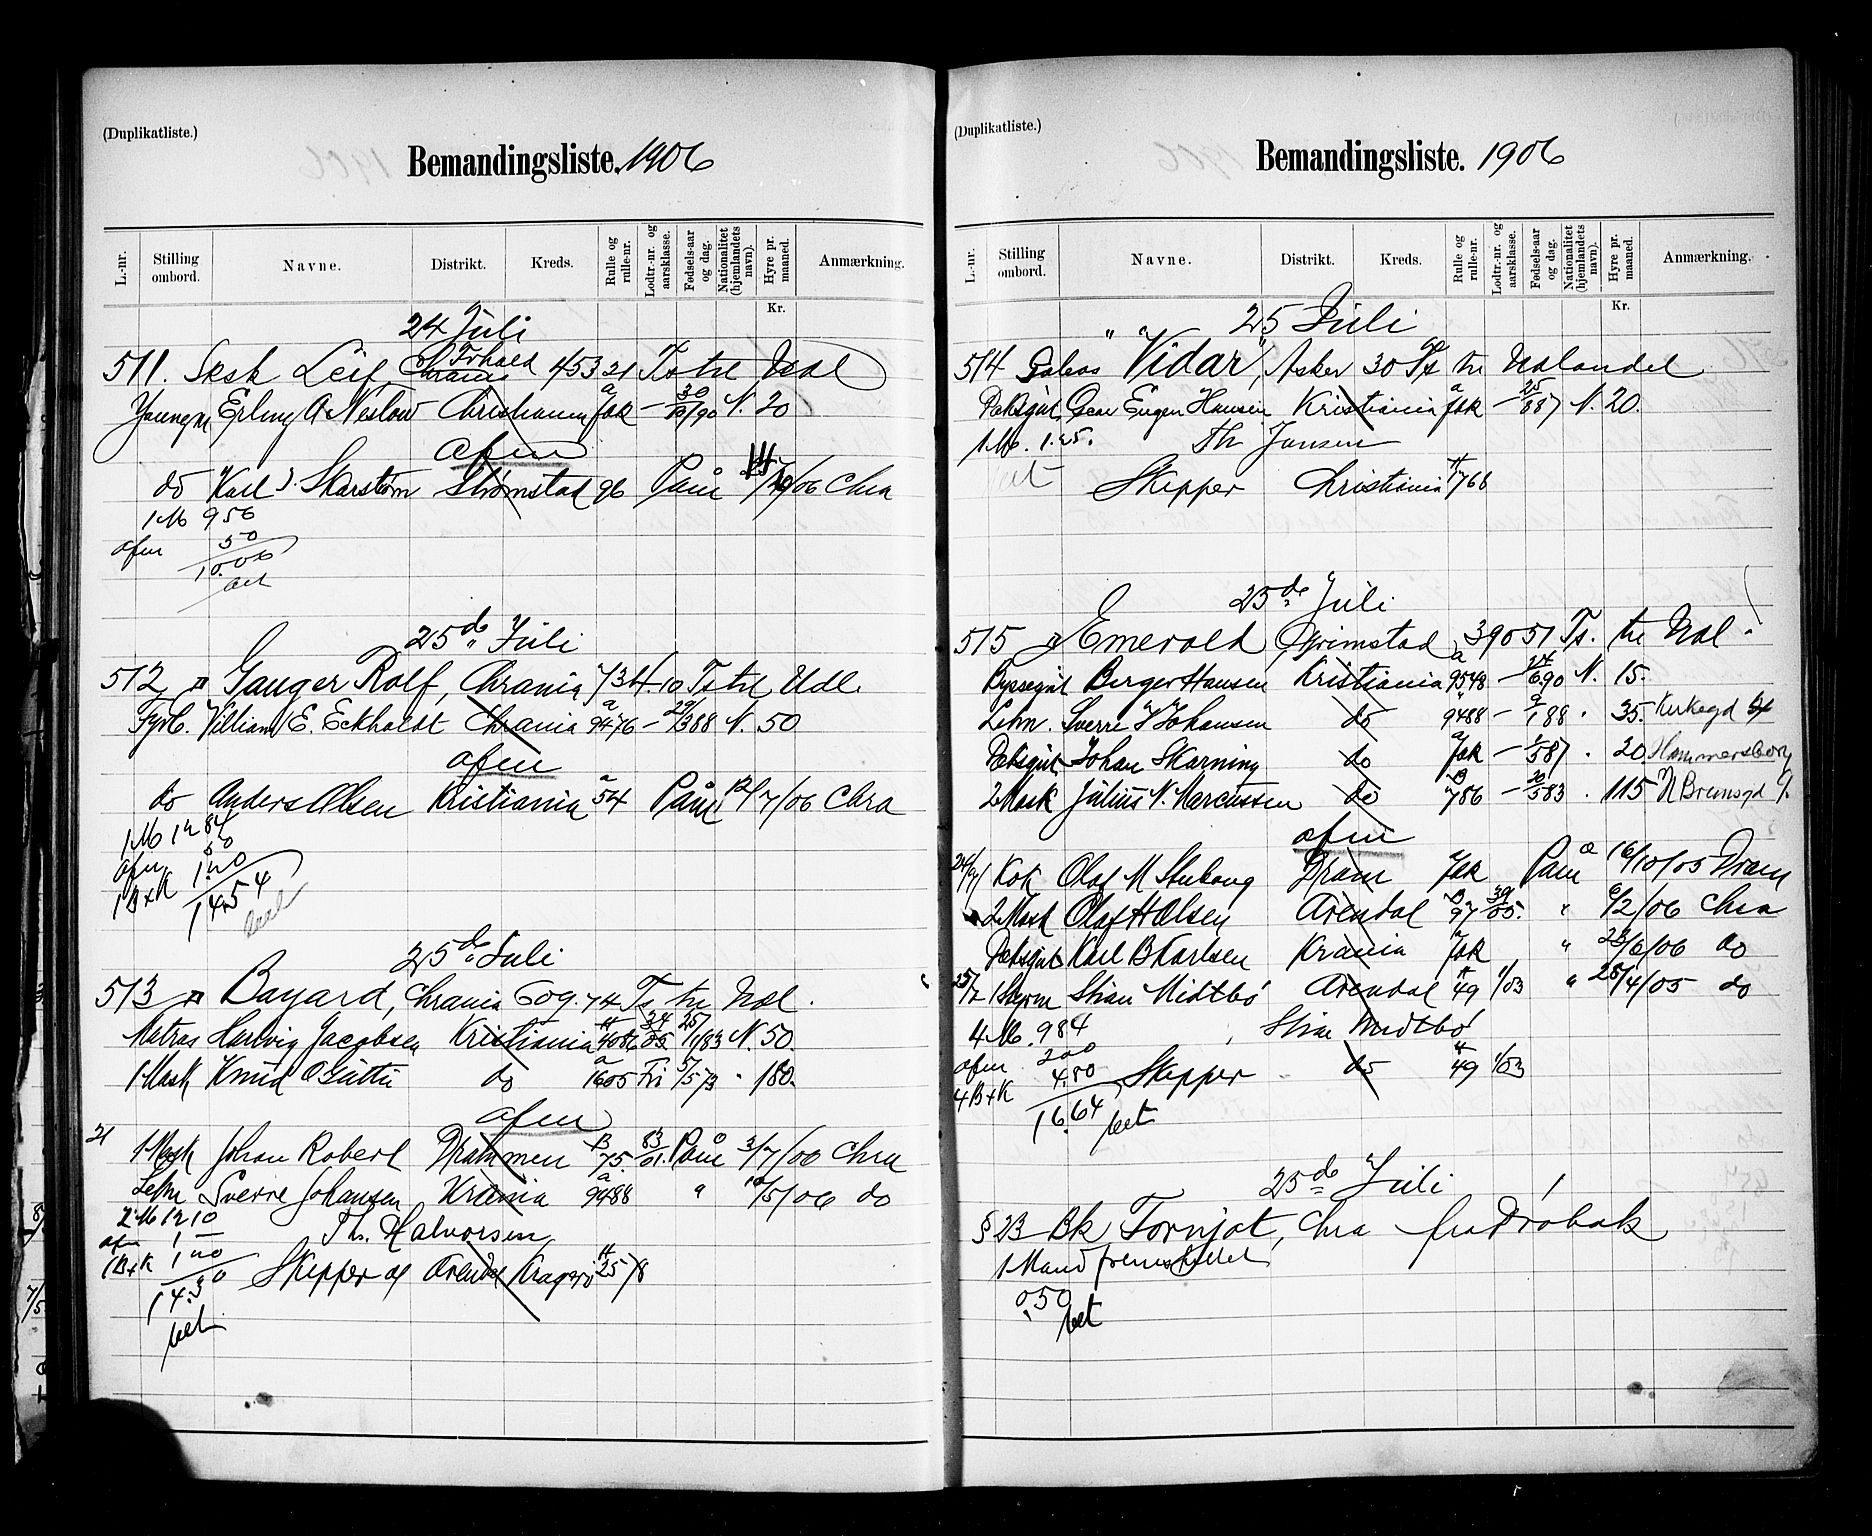 (Duplikatliste.)
Bemandingsliste. 1906
L.-nr. Stilling ombord. Navne. Distrikt. Kreds. Rulle og rulle-nr. Lodtr.-nr. og aarsklasse. Fødsels-aar og dag. Nationalitet (hjemlandets navn). Hyre pr. maaned. Anmærkning.
Kr.
24 Juli
511. Leif 453 21 Ts tre
Youngm Erling A Christiania Jak — 30/90 N. 20
afm
do Karl J. Skarstøm Strømstad 96 Paam /06 Chra
1 M 9 56
afm 50
10.06
bet
25de Juli
512 D Ganger Rolf, Chrania 734.10 Ts tre Udl.
Fyrb. Villiam E. Eckholdt Chrania a 9476 — 29/3 88 N. 50
afm
do Anders Olsen Kristiania a 54 Paam 12/7/06 Chra
1 M 12 84
afm 50
1 B+K 1.20
14.54
25de Juli
513 D Bayard, Chrania 609.74 Ts tre Nol.
Matros Hartvig Jacobsen Kristiania 4086 34/05 25/11/83 N. 50
1 Mask Knud O Guttu do a 1605 Fri 5/5 73 " 180.
afm
21 1 Mask Johan Robert Drammen B 75. 83/01. Paam 3/7/00 Chra
Letm Sverre Johansen Krania a 9488 " 10/5/06 do
2 M 12 10
afm 1 —
1 B+K 1 20
14.30
Th. Halvorsen
Skipper af Arendal Kragerø 25 78
bet
(Duplikatliste.)
Bemandingsliste. 1906
L.-nr. Stilling ombord. Navne. Distrikt. Kreds. Rulle og rulle-nr. Lodtr.-nr. og aarsklasse. Fødsels-aar og dag. Nationalitet (hjemlandets navn). Hyre pr. maaned. Anmærkning.
Kr.
25 Juli
514 Galeas "Vidar", Asker 30 Ts tre Nolandel
Dæksgut Oscar Eugen Hansen Kristiania a Jak — 25/8 87 N. 20.
1 M. 1.25. Th Jansen
bet
Skipper Christiania 768
25de Juli
515 D Emerald, Grimstad 390 51 Ts. tre Nol.
Byssegut Birger Hansen Kristiania a 9548 — 24/6 90 N. 15.
Letm. Sverre J Johansen do 9488 — 9/1 88 " 35. Kirkegd
Dæksgut Johan Skarning do a Jak — 1/5 87 " 20 Hammersborg
2 Mask Julius N. Marcussen do B 786 — 30/5 83 " 115
afm
24/7 Kok Olaf M Stubong Dram Jak Paam 16/10/05 Dram
2 Mask Olaf H Olsen Arendal B 97 39/05. " 6/2/06 Chra
Dæksgut Karl B Karlsen Krania Jak " 23/6/06 do
25/7 1 Styrm Stian Midtbø Arendal 49 1/03 " 28/4/05 do
4 M. 9 84
afm 2 00
4 B+K 4.80
16.64
bet
Stian Midtbø
Skipper do 49 1/03
25de Juli
§ 23 Bk Fornjot, Chra fra Drøbak
1 Mand fremstillet
0.50
bet